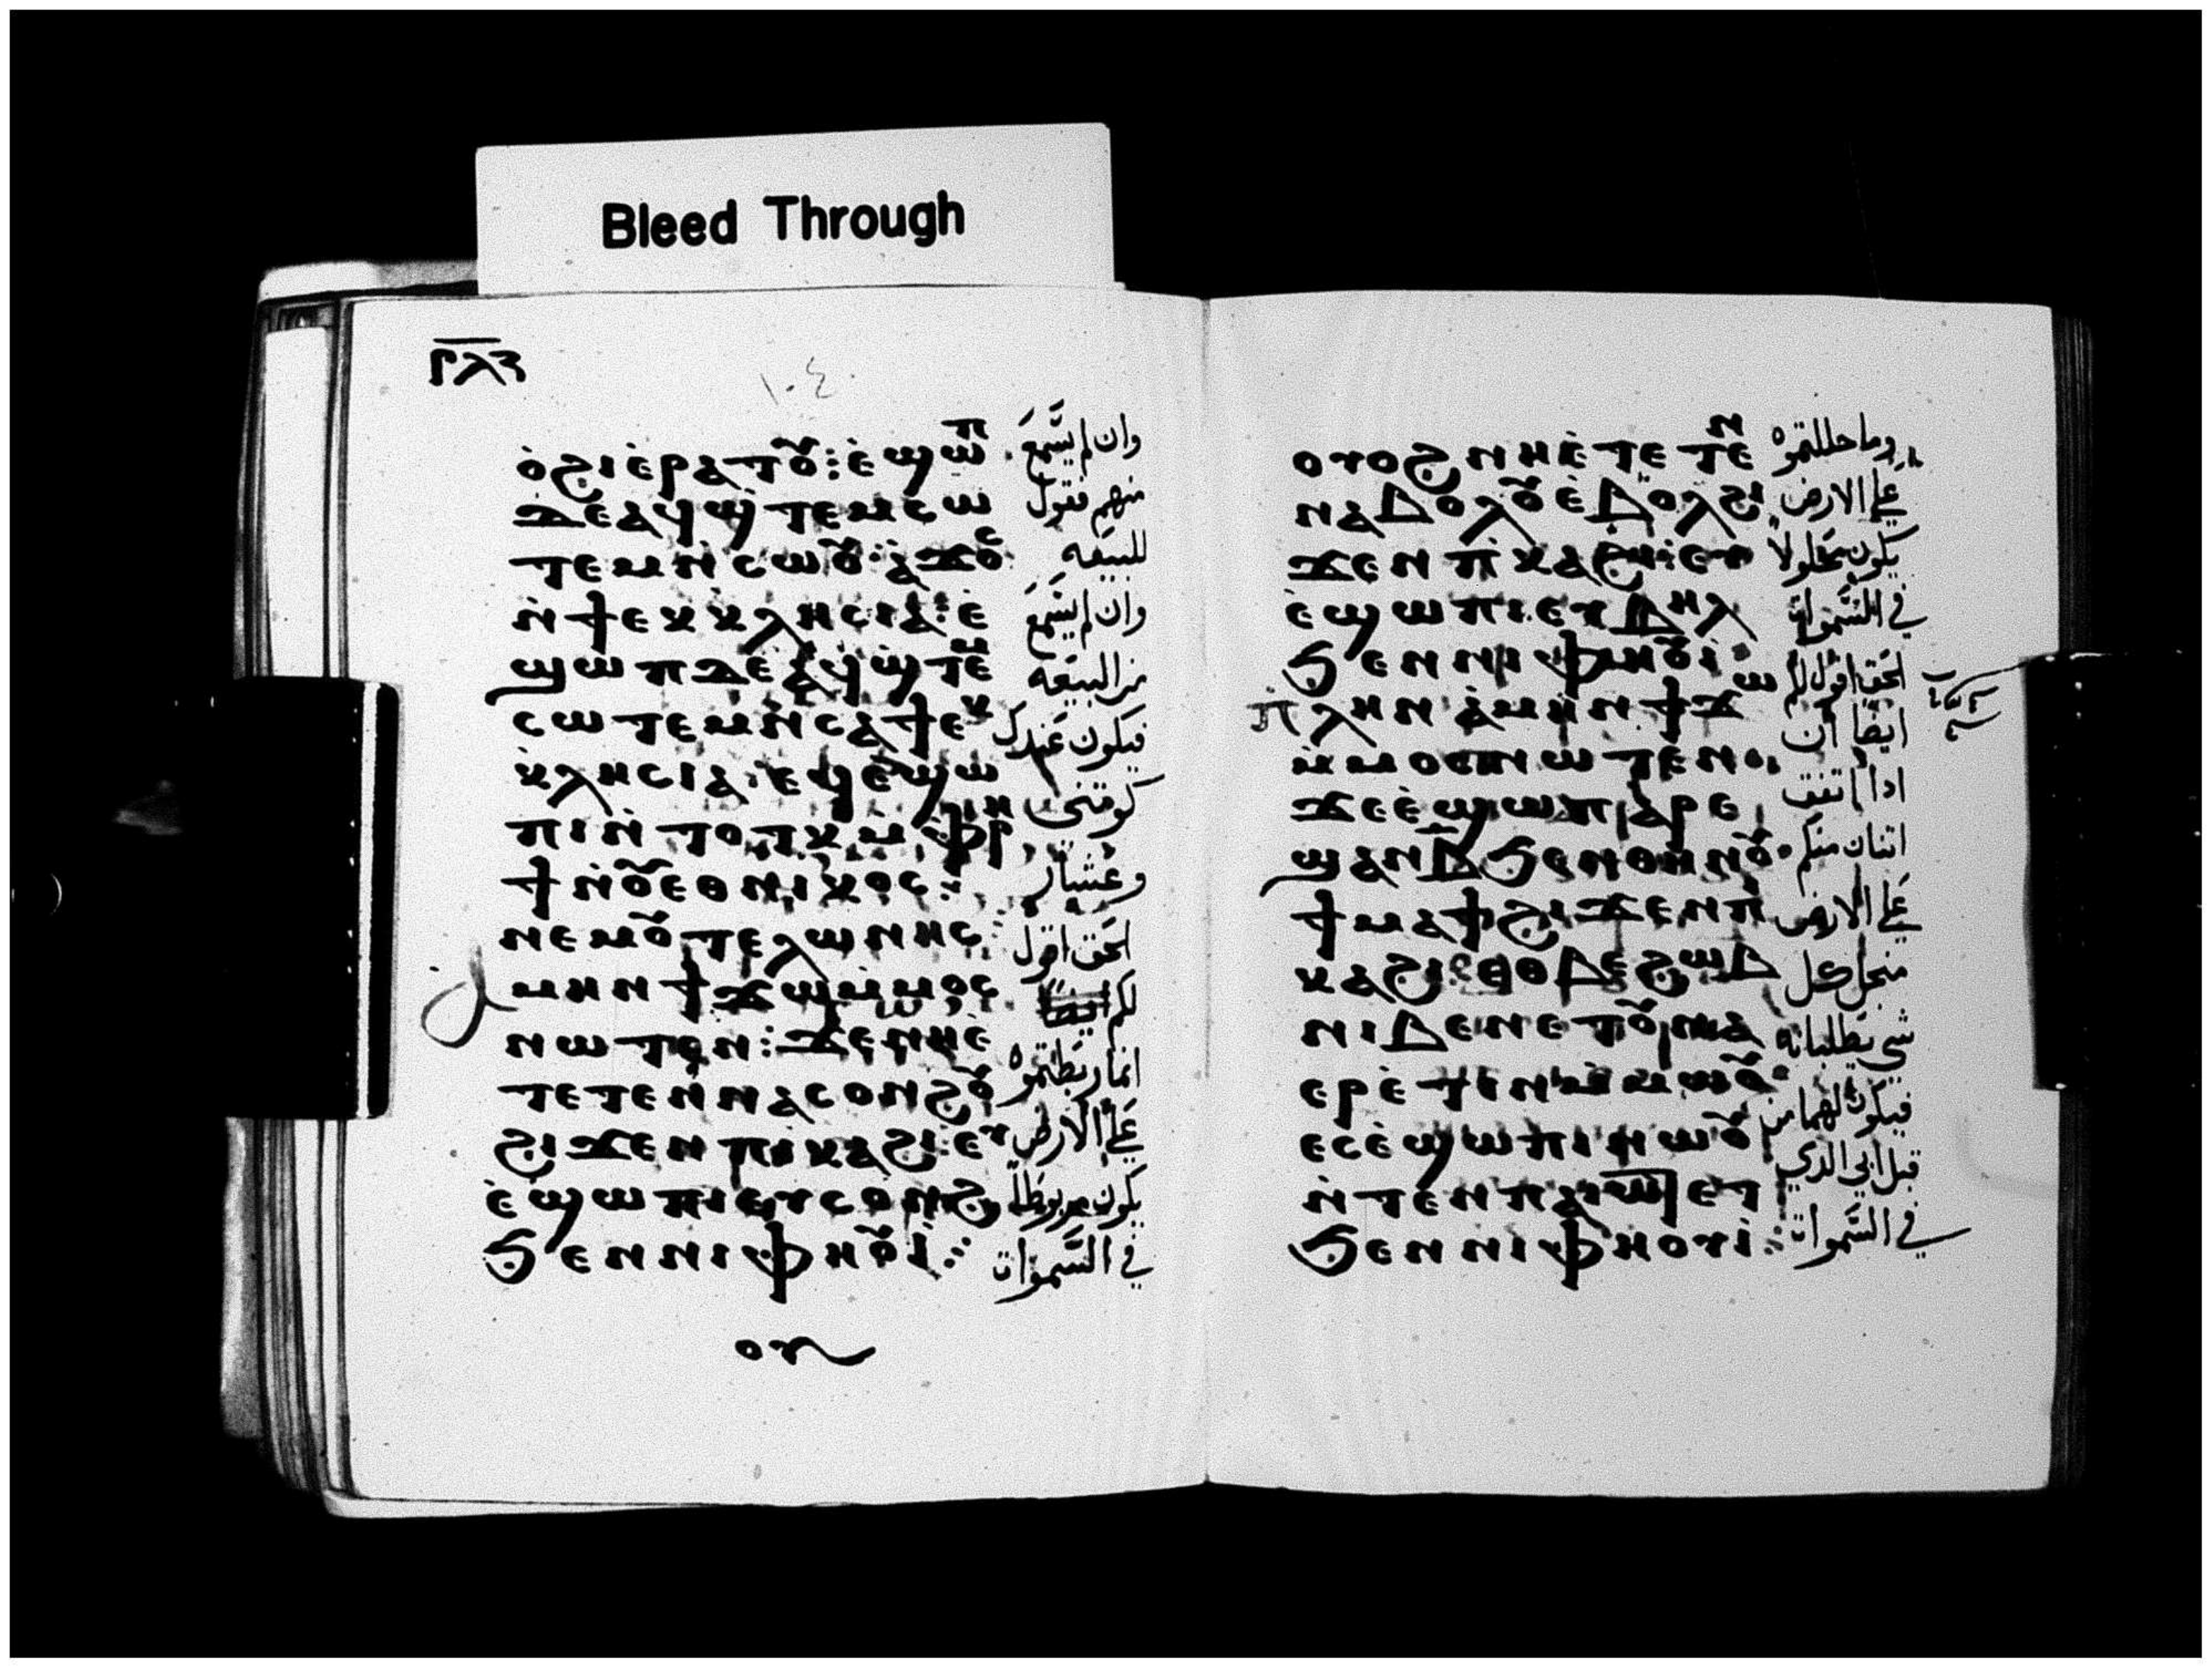 ⲣⲗⲍ
١٠٤
ⲟ̀ϩⲓⲉ̀ⲣⲁⲧⲟⲩ: ⲉ̀ϣⲱⲡ
ϫⲉⲁϥϣ̀ⲧⲉⲙⲥⲱ
ⲧⲉⲙⲛ̀ⲥⲱⲟⲩ: ⲁ̀ϫⲟⲥ
ⲛ̀ϯⲉⲕⲕⲗⲏⲥⲓⲁ: ⲉ̀
ϣⲱⲡϫⲉⲁϥϣ̀ⲧⲉⲙ
ⲥⲱⲧⲉⲙⲛ̀ⲥⲁϯⲉⲕ
ⲕⲗⲏⲥⲓⲁ: ⲉϥⲉ̀ϣⲱ
ⲡⲓⲛ̀ⲧⲟⲧⲕⲙ̀ⲫⲣⲏ
ϯⲛ̀ⲟⲩⲉⲑⲛⲓⲕⲟⲥ:
ⲛⲉⲙⲟⲩⲧⲉⲗⲱⲛⲏⲥ:
ⲁⲙⲏⲛϯϫⲱⲙ̀ⲙⲟⲥ
ⲛⲱⲧⲉⲛ: ϫⲉⲛⲏⲉ̀
ⲧⲉⲧⲉⲛⲛⲁⲥⲟⲛϩⲟⲩ
ϩⲓϫⲉⲛⲡⲓⲕⲁϩⲓ: ⲉⲩ
ⲉ̀ϣⲱⲡⲓⲉⲩⲥⲟⲛϩ
ϧⲉⲛⲛⲓⲫⲏⲟⲩⲓ̀:
ⲟⲩ
وان لم يسَّمعَ
منهم فتول
للبيعَه
وان لم يسَّمعَ
من البيعَه
فيكون عَندك
كوتني
وعَشار
الحَق اقول
لكم
انما ربطتموه
علَي الارض
يكون مربوطاً
في السَّموات
ⲟⲩⲟϩⲛⲏⲉ̀ⲧⲉⲧⲉⲛ
ⲛⲁⲃⲟⲗⲟⲩⲉ̀ⲃⲟⲗϩⲓ
ϫⲉⲛⲡⲓⲕⲁϩⲓ: ⲉⲩ
ⲉ̀ϣⲱⲡⲓⲉⲩⲃⲏⲗ
ϧⲉⲛⲛⲓⲫⲏⲟⲩⲓ̀:
ⲡⲗⲏⲛⲁ̀ⲙⲏⲛϯϫⲱ
ⲙ̀ⲙⲟⲥⲛⲱⲧⲉⲛ:
ϫⲉⲉ̀ϣⲱⲡⲁⲣⲉ
ϣⲁⲛⲃ̄ϧⲉⲛⲑⲏⲛⲟⲩ
ϯⲙⲁϯϩⲓϫⲉⲛⲡⲓ
ⲕⲁϩⲓ: ⲉⲑⲃⲉϩⲱⲃ
ⲛⲓⲃⲉⲛⲉⲧⲟⲩⲛⲁ
ⲉⲣⲉ̀ⲧⲓⲛⲙ̀ⲙⲱⲟⲩ
ⲉⲥⲉ̀ϣⲱⲡⲓⲛⲱⲟⲩ
ⲛ̀ⲧⲉⲛⲡⲁⲓⲱⲧⲉⲧ
ϧⲉⲛⲛⲓⲫⲏⲟⲩⲓ̀:
وما حللتموه
علَي الارض
يكون محَلولاً
في السَّموات
الحَق اقول لكم
ايضاً ان
اذا اتفق
اثنان منكم
علَي الارض
من اجل كل
شي يطلبانه
فيكون لهما من
قبل ابي الذي
في السَّموات
Bleed Through